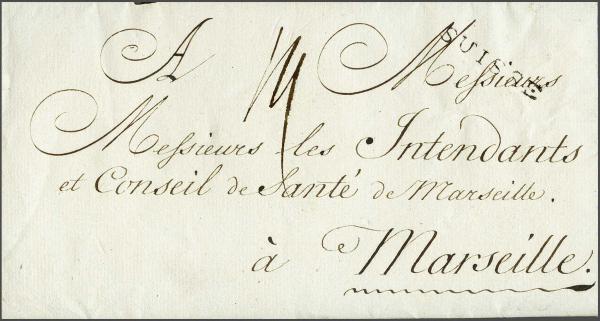 A Messieurs
SUISSE
Messieurs les Intendants
et Conseil de Santé de Marseille.
à Marseille.